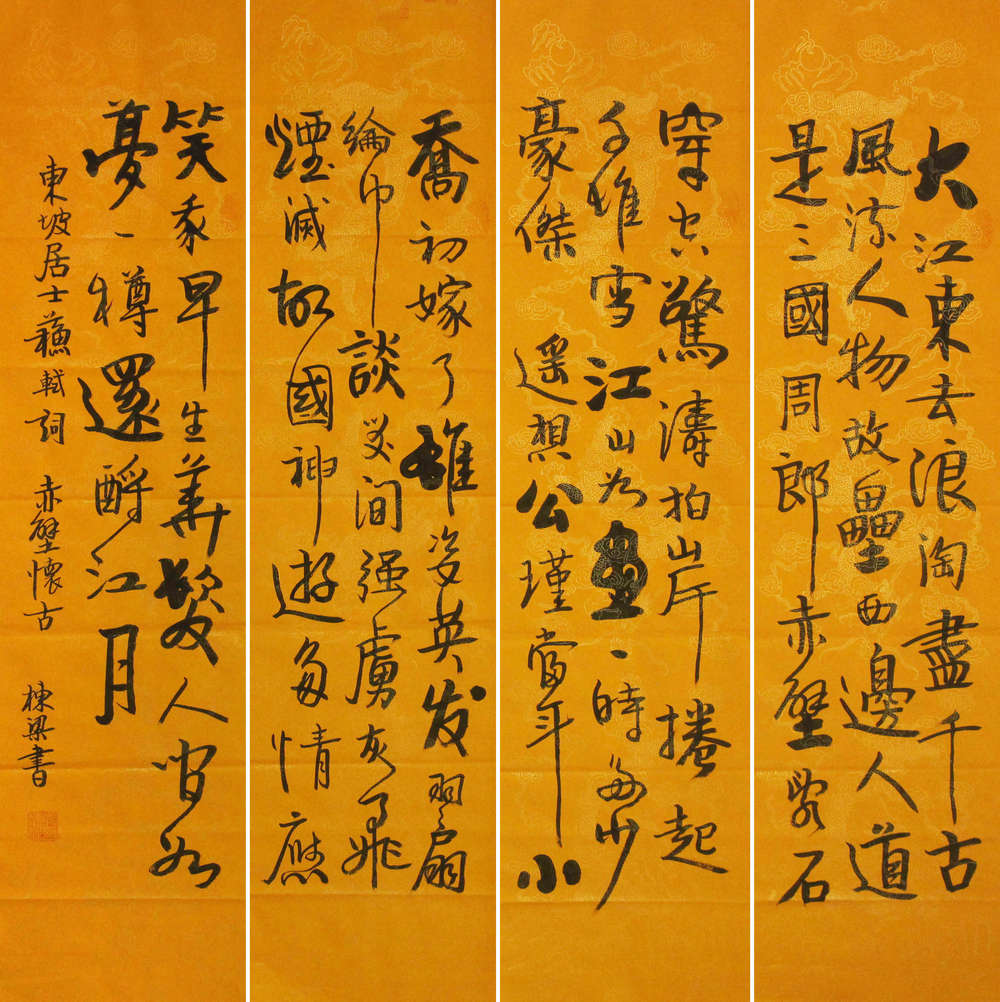 大江東去浪淘盡千古
風流人物故壘西邊人道
是三國周郎赤壁亂石
穿空驚濤拍岸捲起
千堆雪江山如畫一時多少
豪傑遥想公瑾當年小
喬初嫁了雄姿英发羽扇
綸巾談笑間强虜灰飛
煙滅故國神遊多情應
笑我早生華髮人間如
夢一樽還酹江月
東坡居士蘇軾詞 赤壁懷古 棟梁書